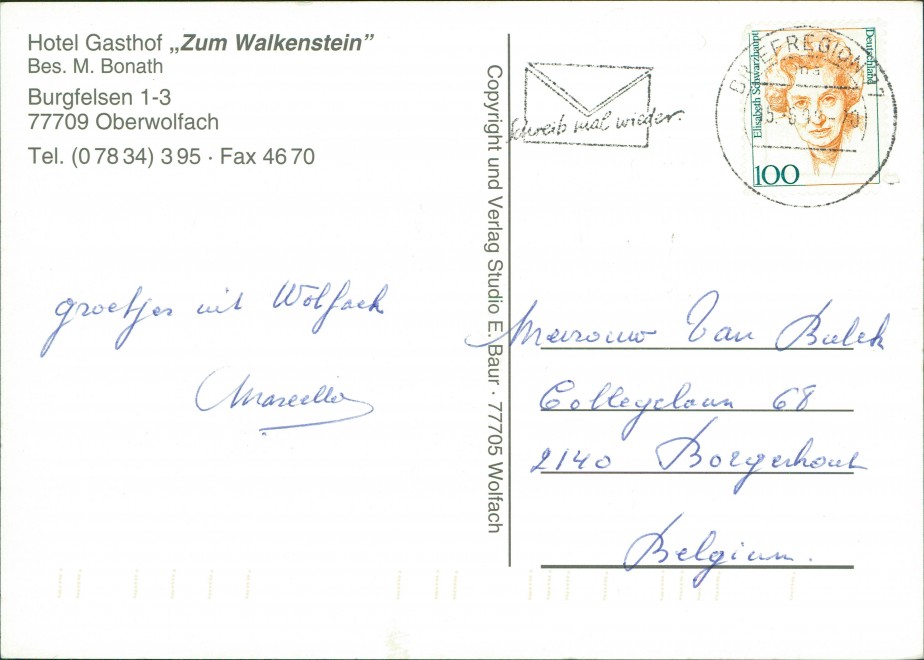 Hotel Gasthof „Zum Walkenstein”
Bes. M. Bonath
Burgfelsen 1-3
77709 Oberwolfach
Tel. (0 78 34) 3 95 · Fax 46 70
groetjes uit Wolfach
Marcella
Copyright und Verlag Studio E. Baur · 77705 Wolfach
Schreib mal wieder.
BRIEFREGION
Elisabeth Schwarzhaupt
Deutschland
100
Van
Collegelaan 68
2140 Borgerhout
Belgium.